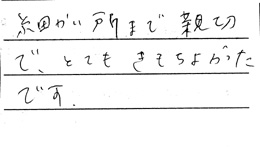 細かい所まで親切
で、とてもきもちよかった
です.